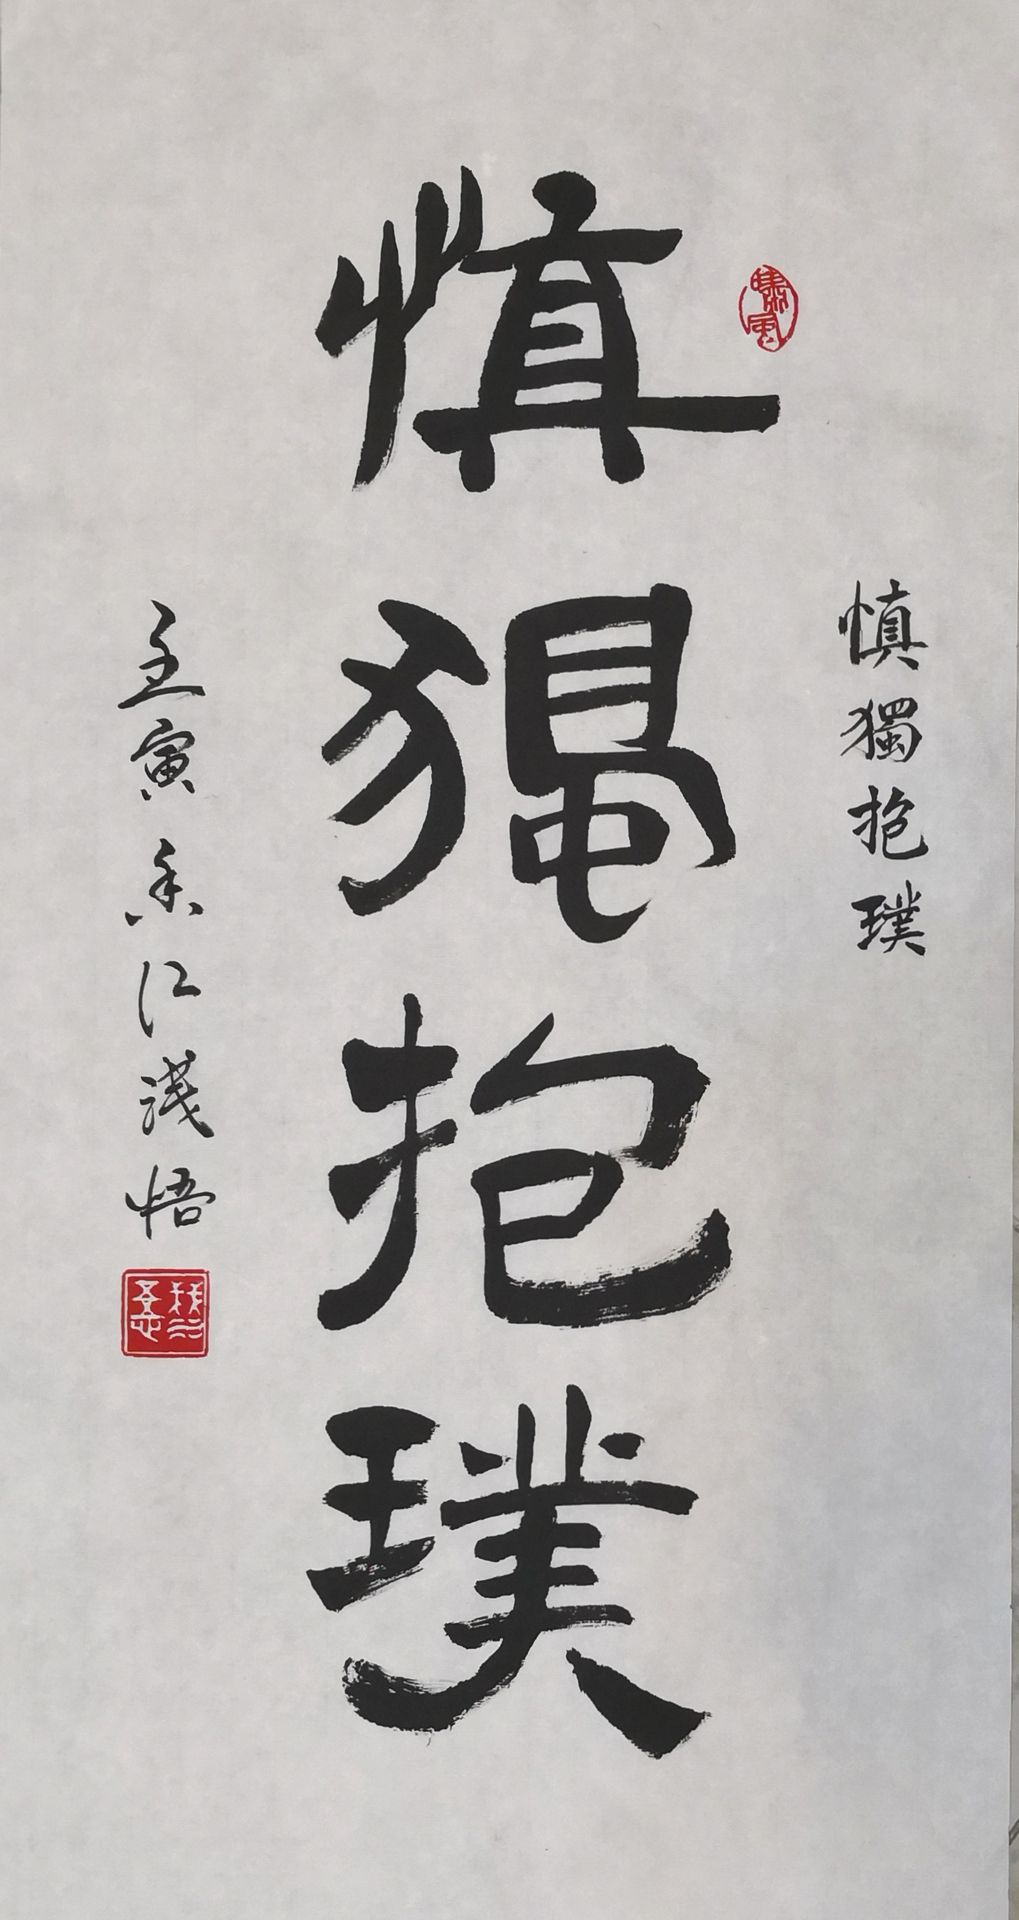 慎獨抱璞
慎獨抱璞
壬寅冬江淺悟